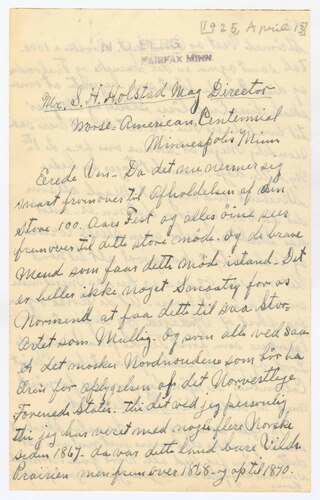 [1925, April 15]
FAIRFAX MINN
Mr. S. H. Holstad Mag Director
Norse-American Centennial
Minneapolis Minn
Erede Ven - Da det nu nermer sig
snart fremover til Afholdelsen af den
store 100. Aars Fest og alles öine seer
fremover til dette store möde. og de brave
Mend som faar dette Möde istand. Det
er heller ikke noget for os
Normend at faa dette til saa Stor-
Artet som Mullig. Og som alle ved saa
er det norske som bör ha
Æren for af det Norvestlige
Forenede States. thi det ved jeg personlig
thi jeg har veret med nogle flere Norske
siden 1867. da var dette land bare Vilde
Prairien men fremover 1868 - og op til 1870.